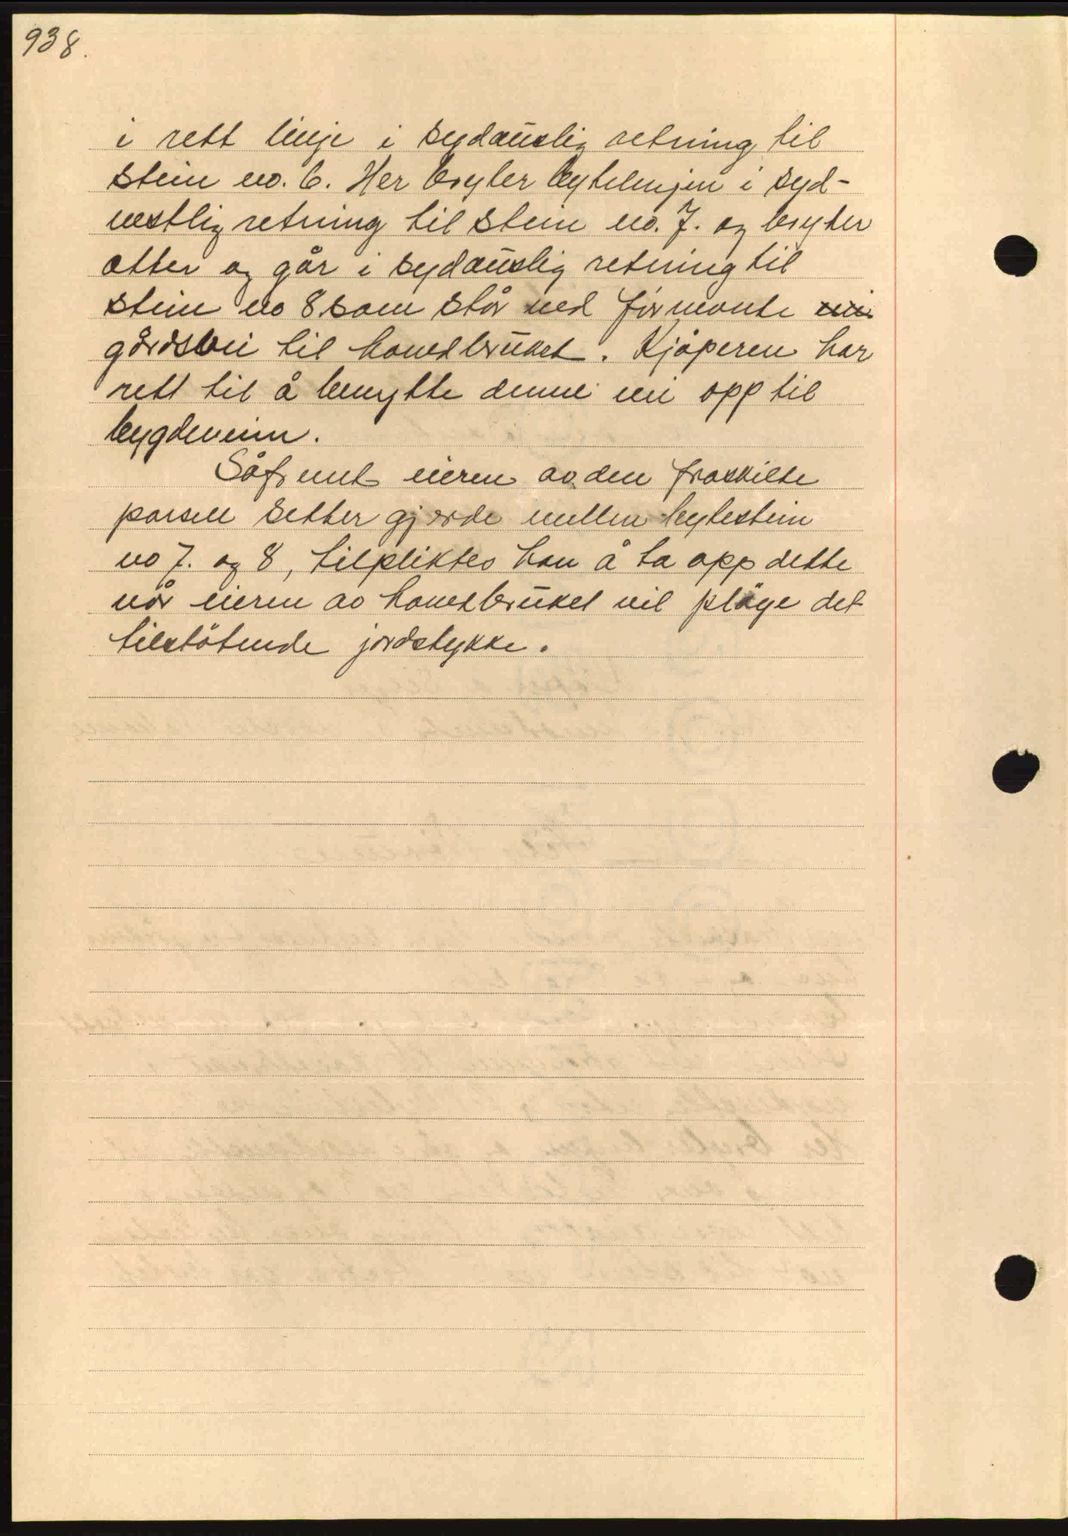 938.
i rett linje i sydaustlig retning til
stein no. 6. Her bryter bytelinjen i syd-
vestlig retning til stein no. 7. og bryter
atter og går i sydaustlig retning til
stein no 8 som står ved förnevnte
gårdsvei til hovedbruket. Kjöperen har
rett til å benytte denne vei opp til
bygdeveien.
Såfremt eieren av den fraskilte
parsell setter gjerde mellem bytestein
no 7. og 8, tilpliktes han å ta opp dette
når eieren av hovedbruket vil plöye det
tilstötende jordstykke.